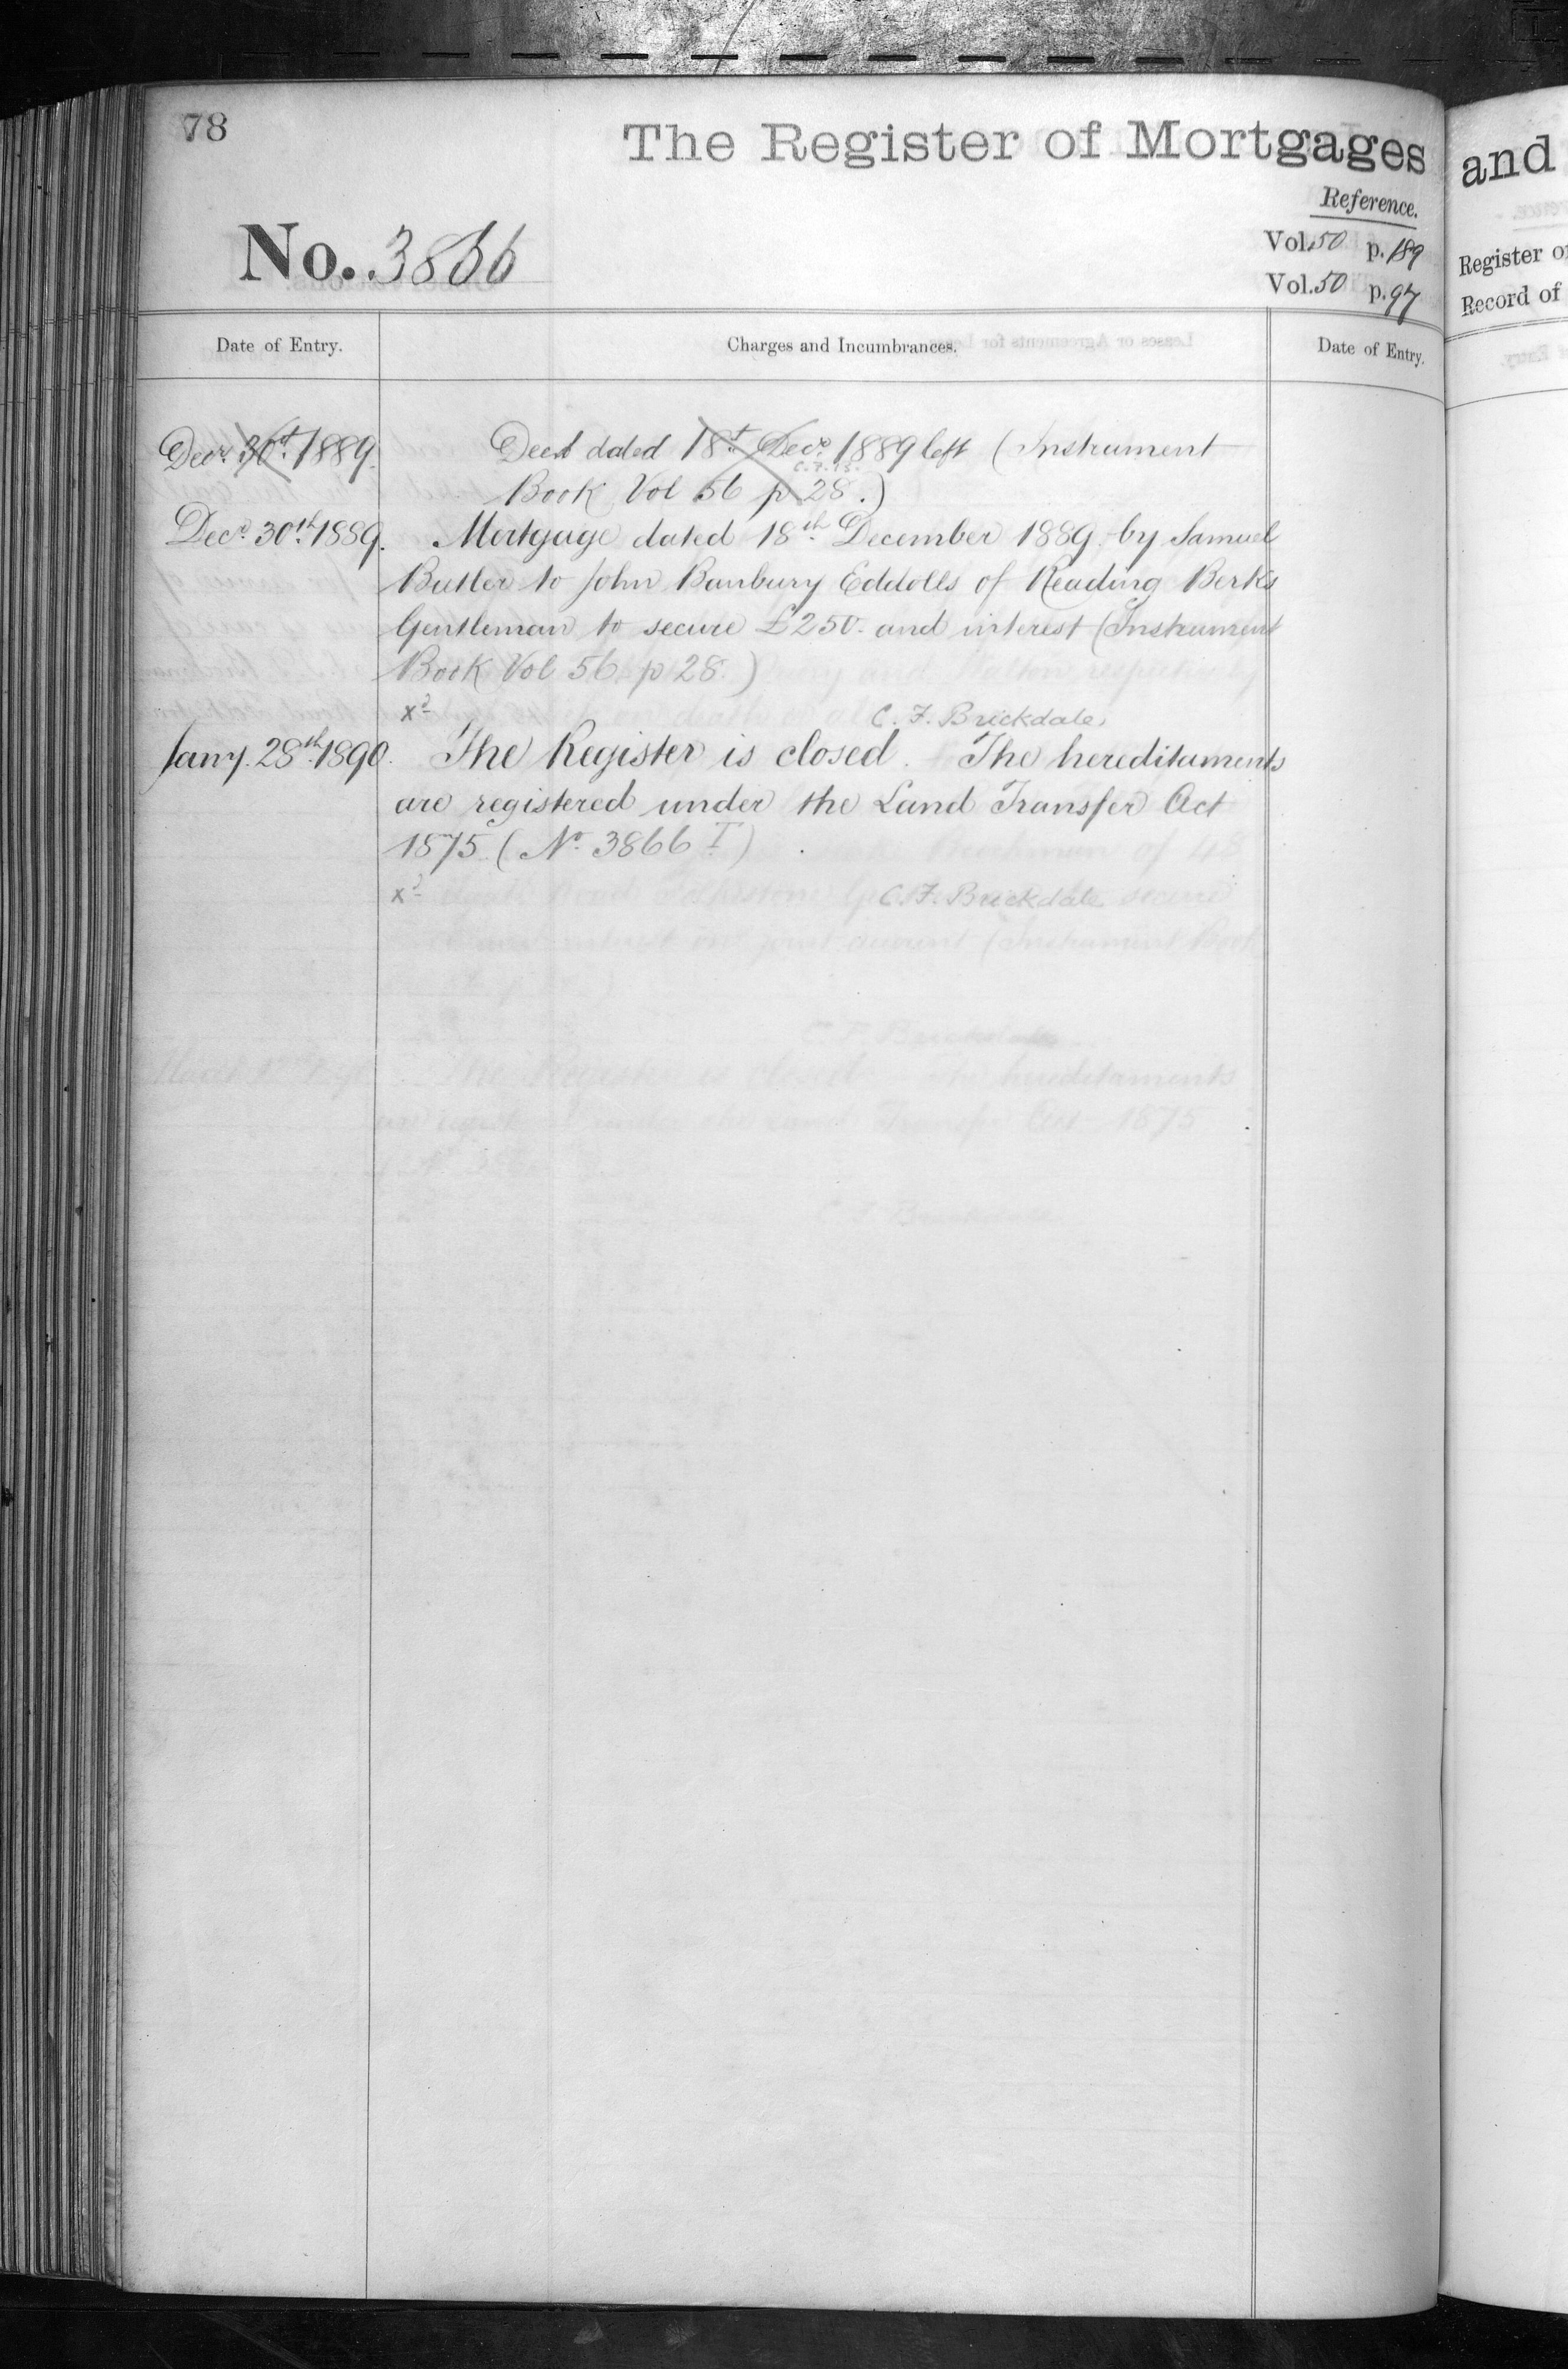 78
The Register of Mortgages
and
Reference.
No. 3866
Vol. 50 p. 189
Register o
Vol. 50 p. 97
Record of
Date of Entry.
Charges and Incumbrances.
Date of Entry.
Decr. 30t. 1889. Deed dated 18t. Decr. 1889 left (Instrument
Book Vol 56 p 28.)
Decr. 30th. 1889. Mortgage dated 18th. December 1889 by Samuel
Butler to John Banbury Eddolls of Reading Berks
Gentleman to secure £250. and interest (Instrument
Book Vol 56 p 28.)
C. F. Brickdale.
Jany. 28th. 1890. The Register is closed. The hereditaments
are registered under the Land Transfer Act
1875. (No. 3866 T)
C. F. Brickdale